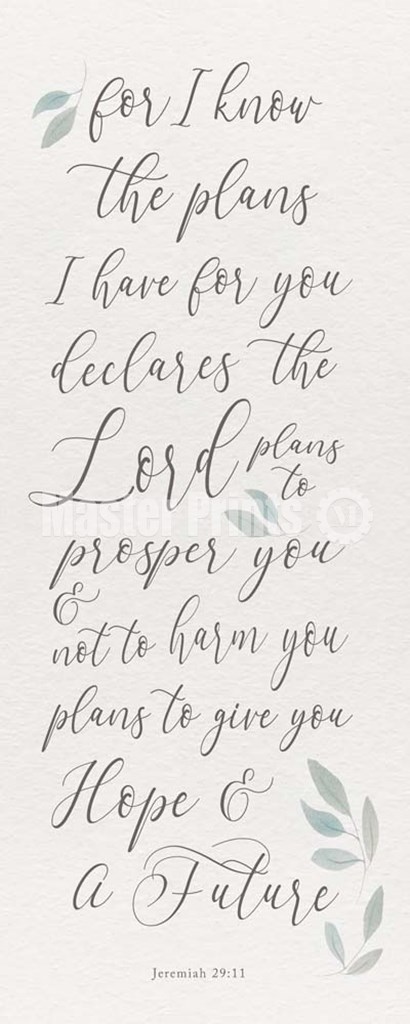 for I know
the plans
I have for you
declares the
Lord plans
to
Master Prints
prosper you
&
not to harm you
plans to give you
Hope &
A Future
Jeremiah 29:11